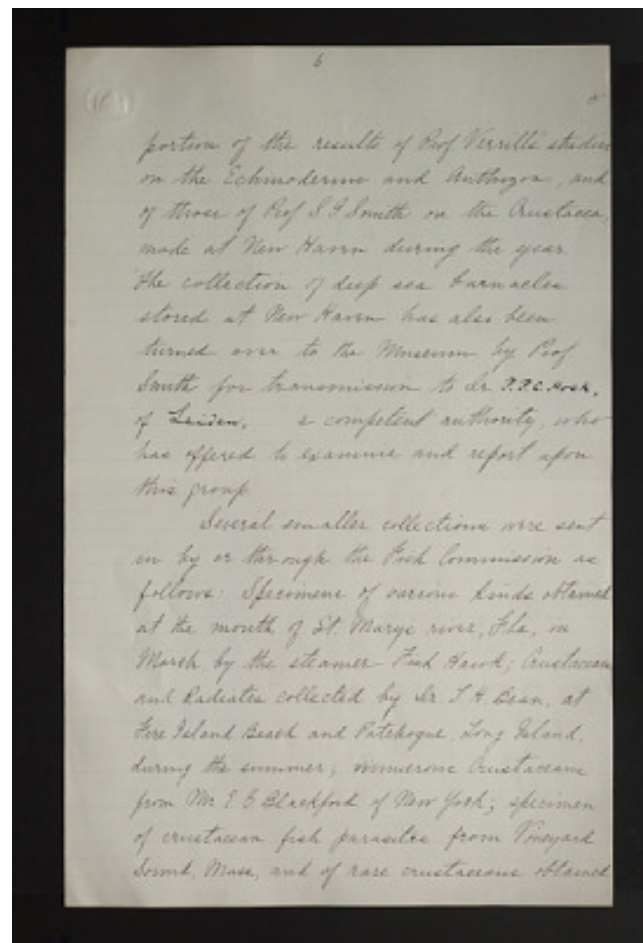 6
5
portion of the results of Prof Verrill's studies
on the Echinoderms and Anthozoa, and
of those of Prof S I Smith on the Crustacea,
made at New Haven during the year
The collection of deep sea barnacles
stored at New Haven has also been
turned over to the Museum by Prof
Smith for transmission to Dr P.P.C. Hoek,
of Leiden, a competent authority, who
has offered to examine and report upon
this group
Several smaller collections were sent
in by or through the Fish Commission as
follows: Specimens of various kinds obtained
at the mouth of St. Marys river, Fla, in
March by the steamer Fish Hawk; Crustaceans
and Radiates collected by Dr T H Bean, at
Fire Island Beach and Patchogue, Long Island,
during the summer; numerous Crustaceans
from Mr E G Blackford of New York; specimen
of crustacean fish parasites from Vineyard
Sound, Mass, and of rare crustaceans obtained